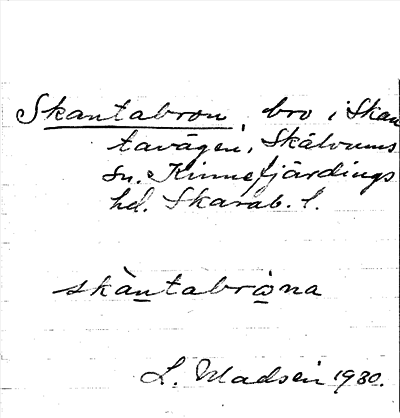 Skantabron, bro i Skan
tavägen, Skälvums
sn. Kinnefjärdings
hd. Skarab. l.
skàntabròna
L. Madsen 1930.